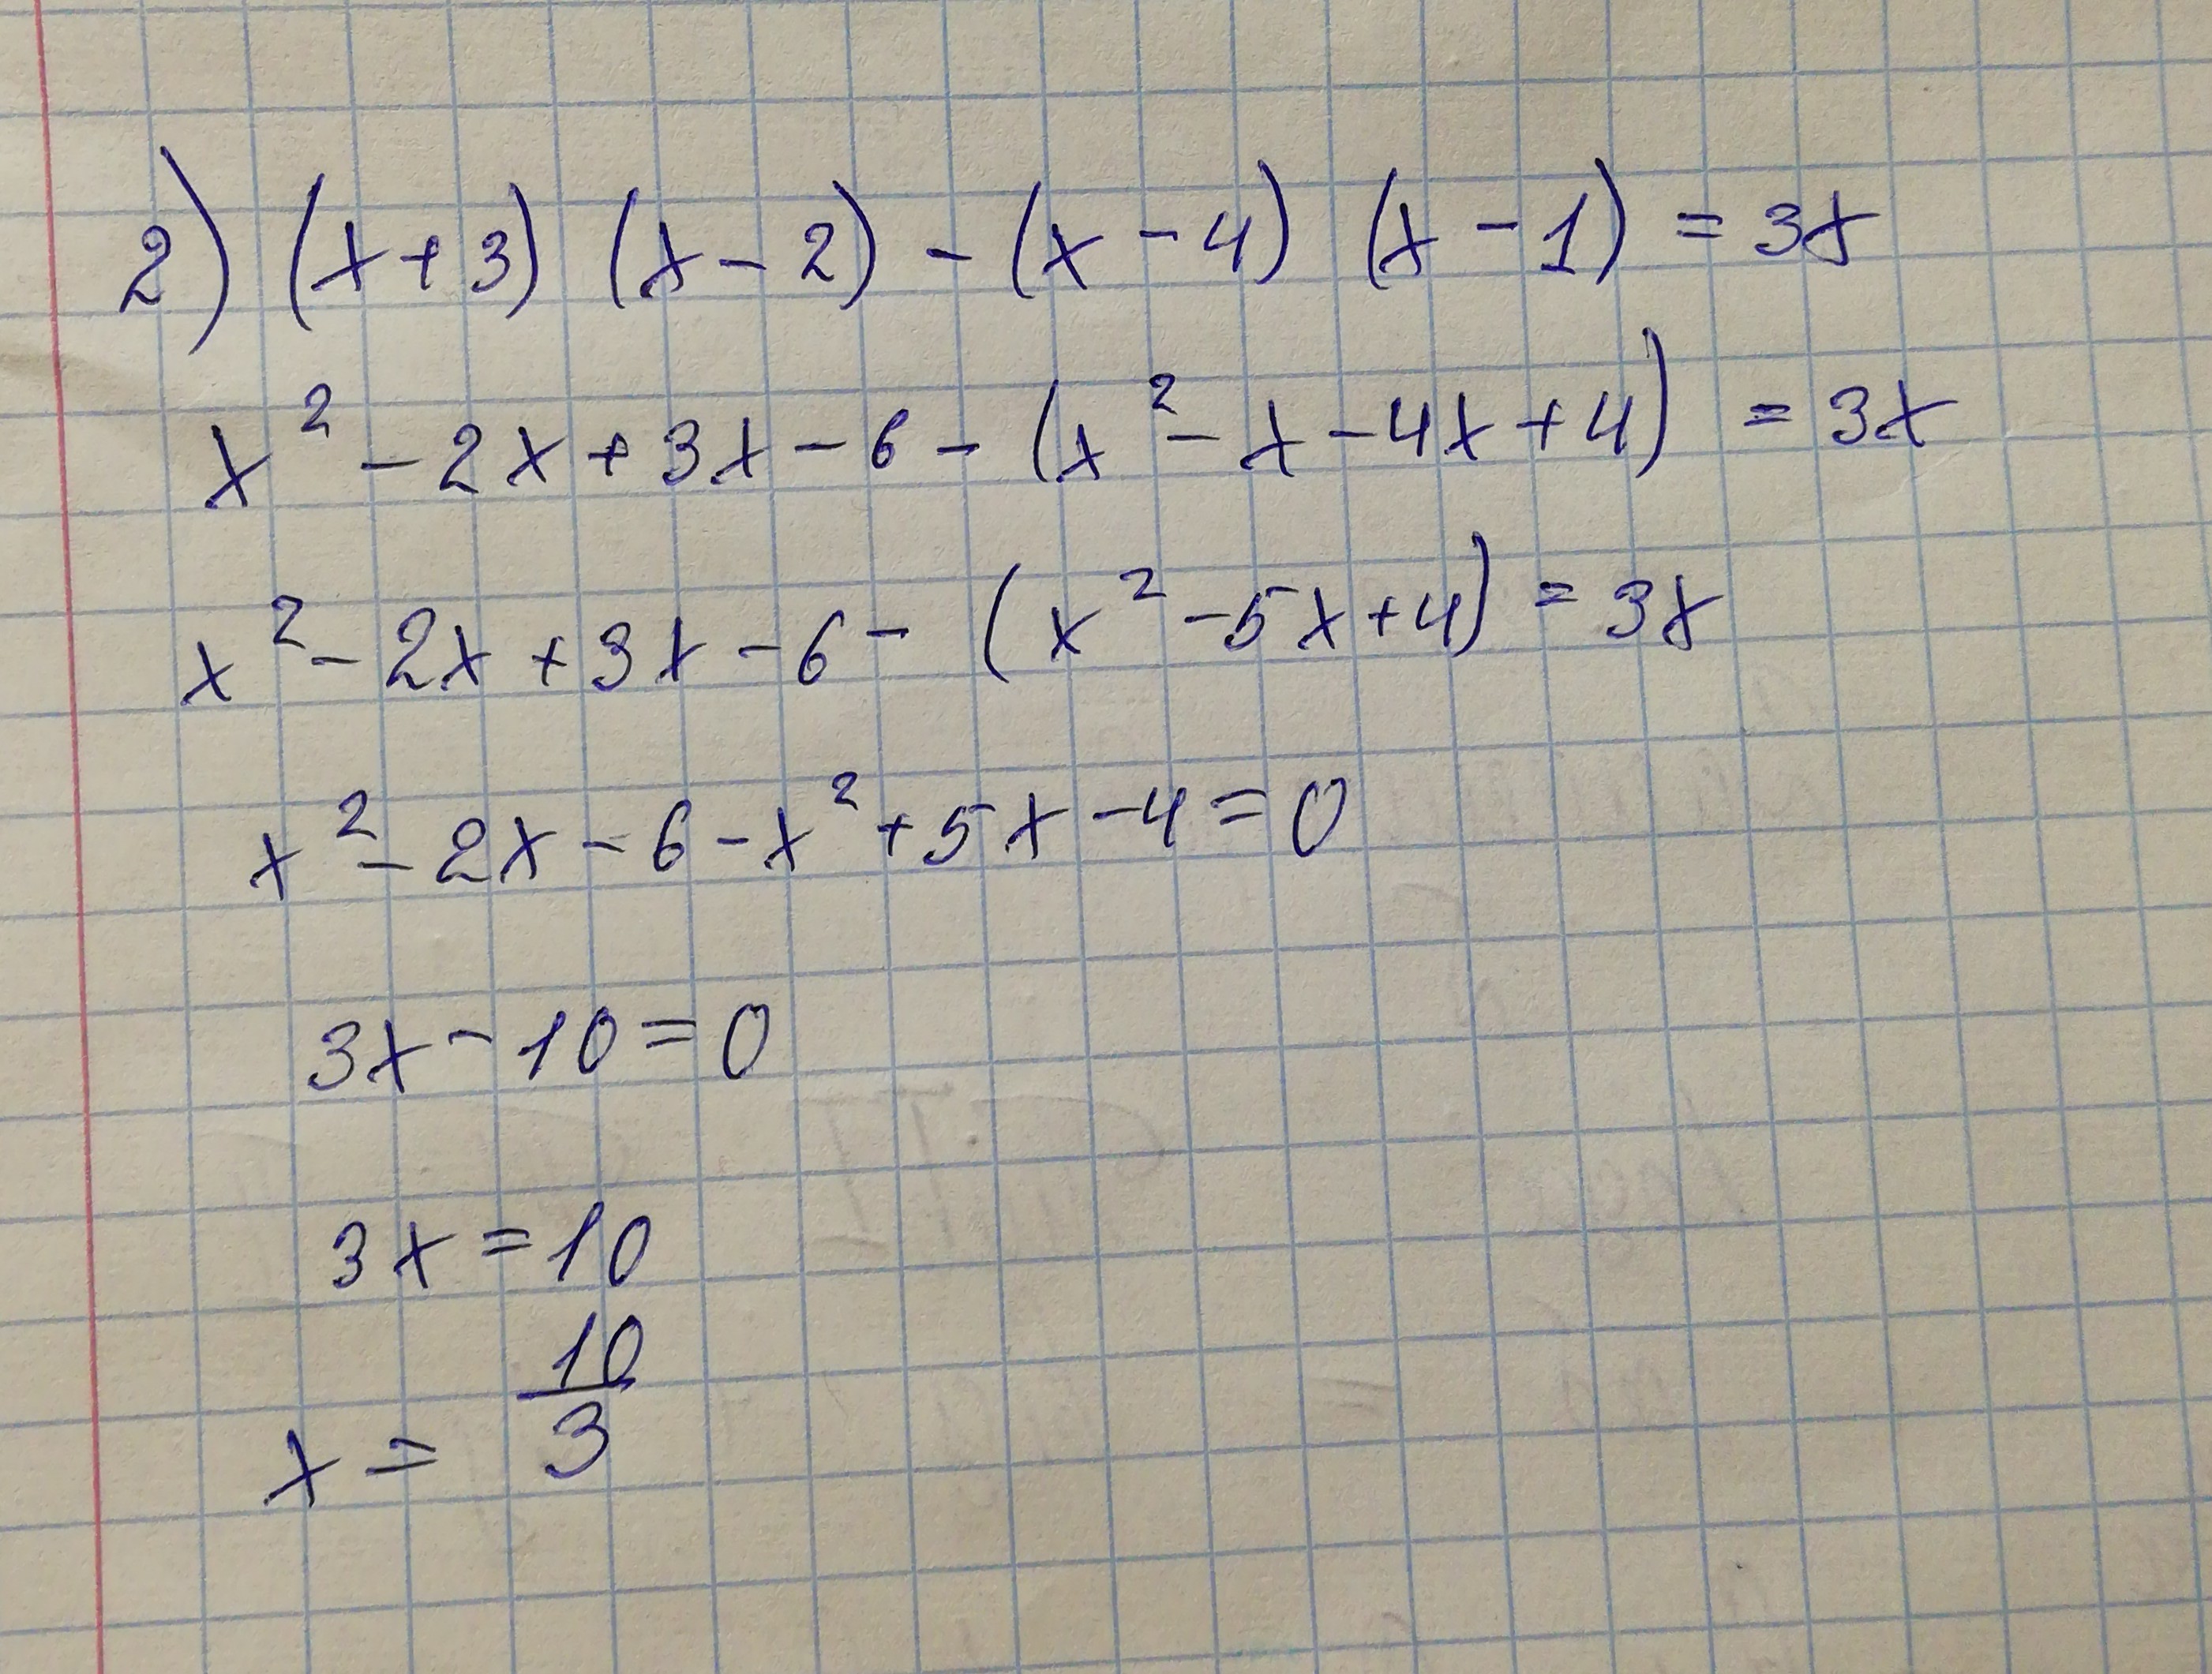 2) (x+3) (x-2) - (x-4) (x-1) = 3x
x² - 2x + 3x - 6 - (x² - x - 4x + 4) = 3x
x² - 2x + 3x - 6 - (x² - 5x + 4) = 3x
x² - 2x - 6 - x² + 5x - 4 = 0
3x - 10 = 0
3x = 10
x = 10/3